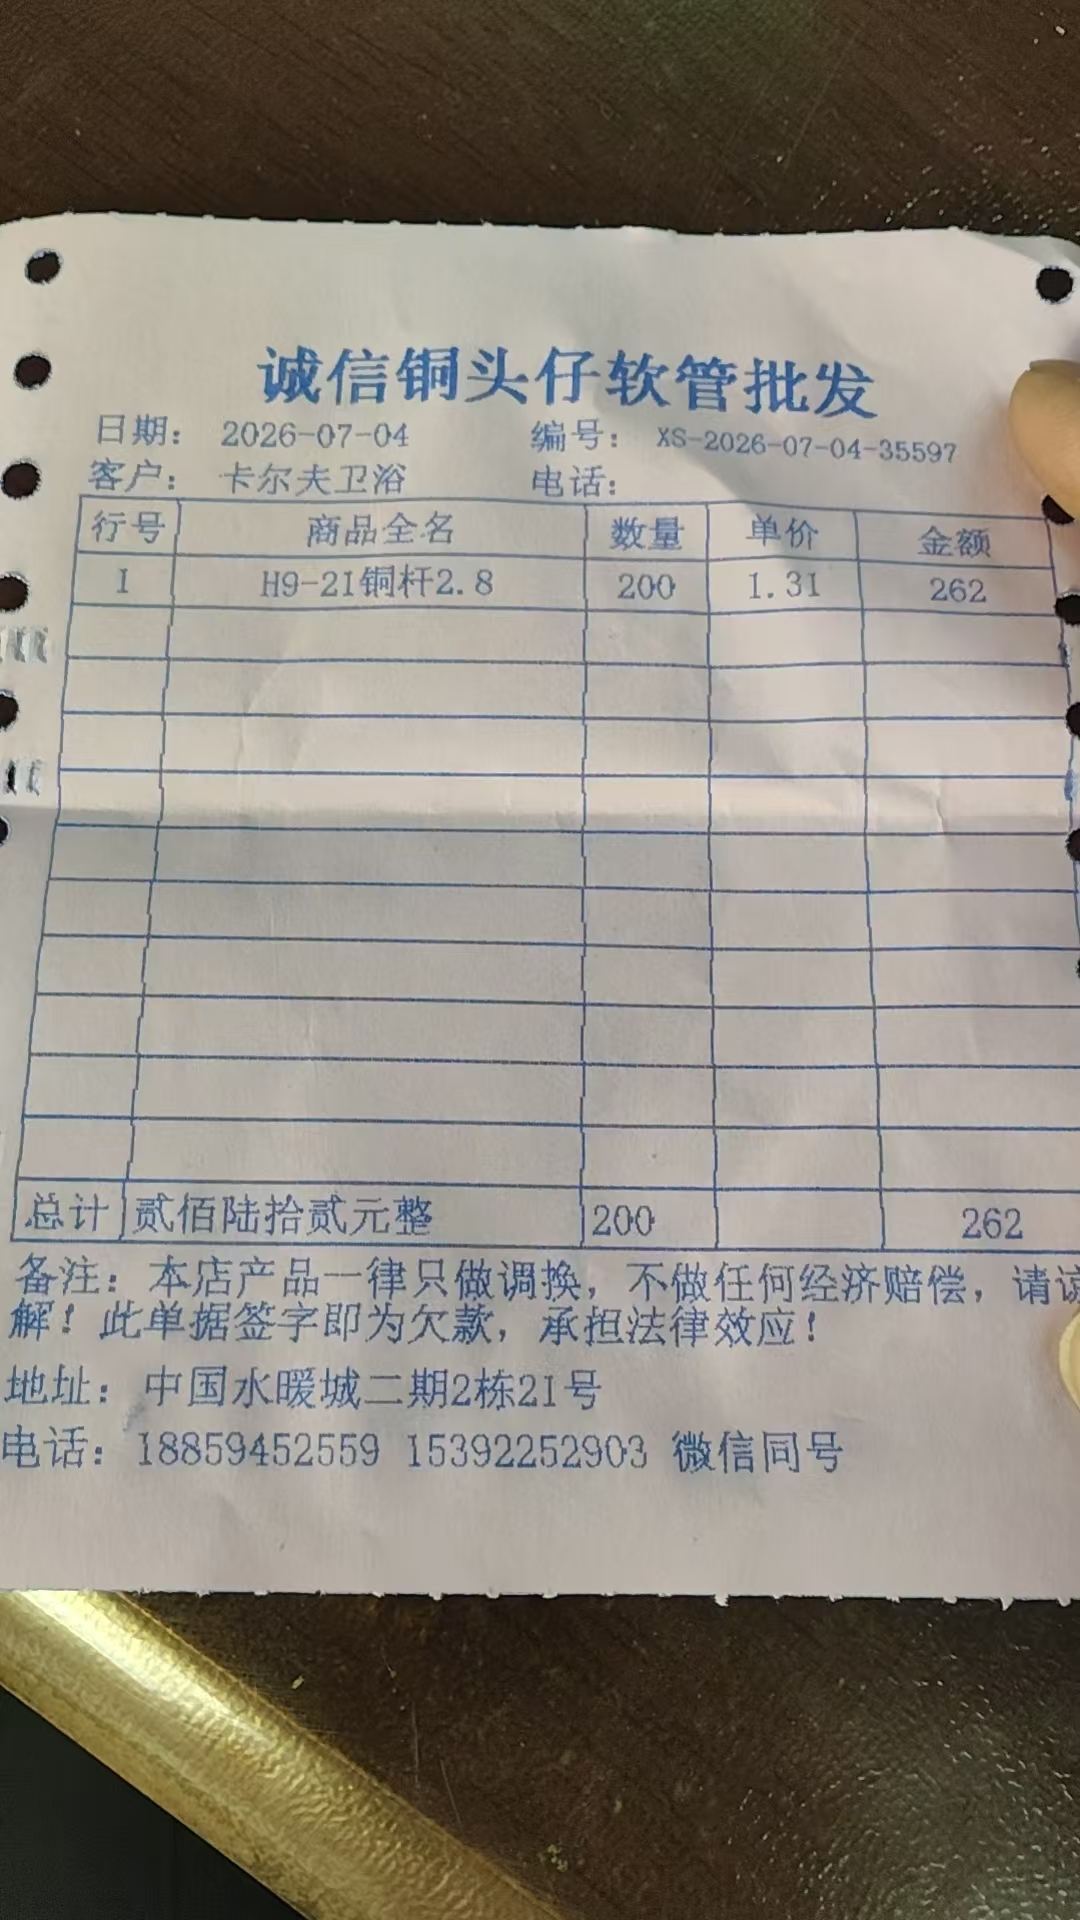 诚信铜头仔软管批发
日期： 2026-07-04 编号： XS-2026-07-04-35597
客户： 卡尔夫卫浴 电话：
行号 商品全名 数量 单价 金额
1 H9-21铜杆2.8 200 1.31 262
总计 贰佰陆拾贰元整 200 262
备注：本店产品一律只做调换，不做任何经济赔偿，请谅
解！此单据签字即为欠款，承担法律效应！
地址：中国水暖城二期2栋21号
电话：18859452559 15392252903 微信同号